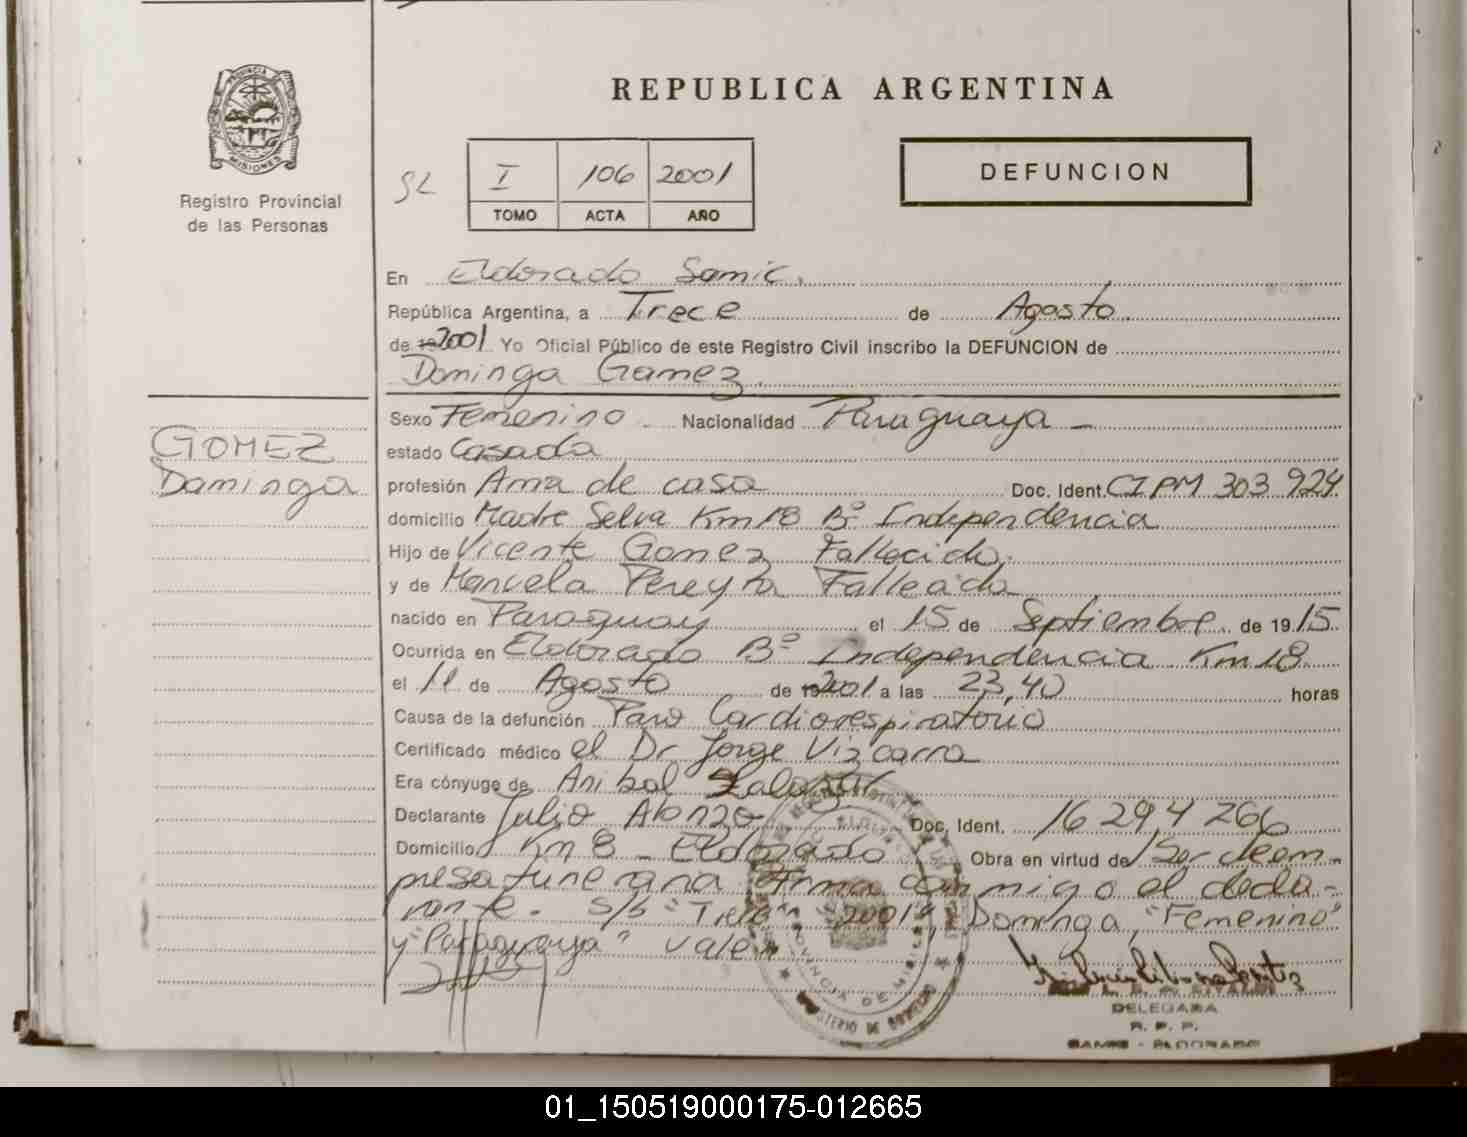 PROVINCIA DE
MISIONES
Registro Provincial
de las Personas
REPUBLICA ARGENTINA
I 106 2001
TOMO ACTA AÑO
DEFUNCION
En Eldorado Samic.
República Argentina, a Trece de Agosto.
de 19 2001 Yo Oficial Público de este Registro Civil inscribo la DEFUNCION de
Dominga Gamez.
Sexo Femenino Nacionalidad Paraguaya -
GOMEZ
Daminga
estado Casada
profesión Ama de casa Doc. Ident. CIPM 303 924
domicilio Madre Selva Km 18 Bº Independencia
Hijo de Vicente Gomez Fallecido.
y de Manuela Pereyra Fallecida
nacido en Paraguay el 15 de Septiembre de 1915.
Ocurrida en Eldorado Bº Independencia Km 18
el 11 de Agosto de 19 2001 a las 23,40 horas
Causa de la defunción Paro Cardiorespiratorio
Certificado médico el Dr Jorge Vizcarra
Era cónyuge de Anibal
Declarante Julio Alonzo Doc. Ident. 16 294 266
Domicilio Km 8 - Eldorado Obra en virtud de Ser de em-
presa funeraria Firma conmigo el decla-
rante. S/b "Trece", "2001", Dominga, "Femenino"
y "Paraguaya" vale
PROVINCIA DE MISIONES
MINISTERIO DE GOBIERNO
DELEGADA
R. P. P.
SAMIC - ELDORADO
01_150519000175-012665